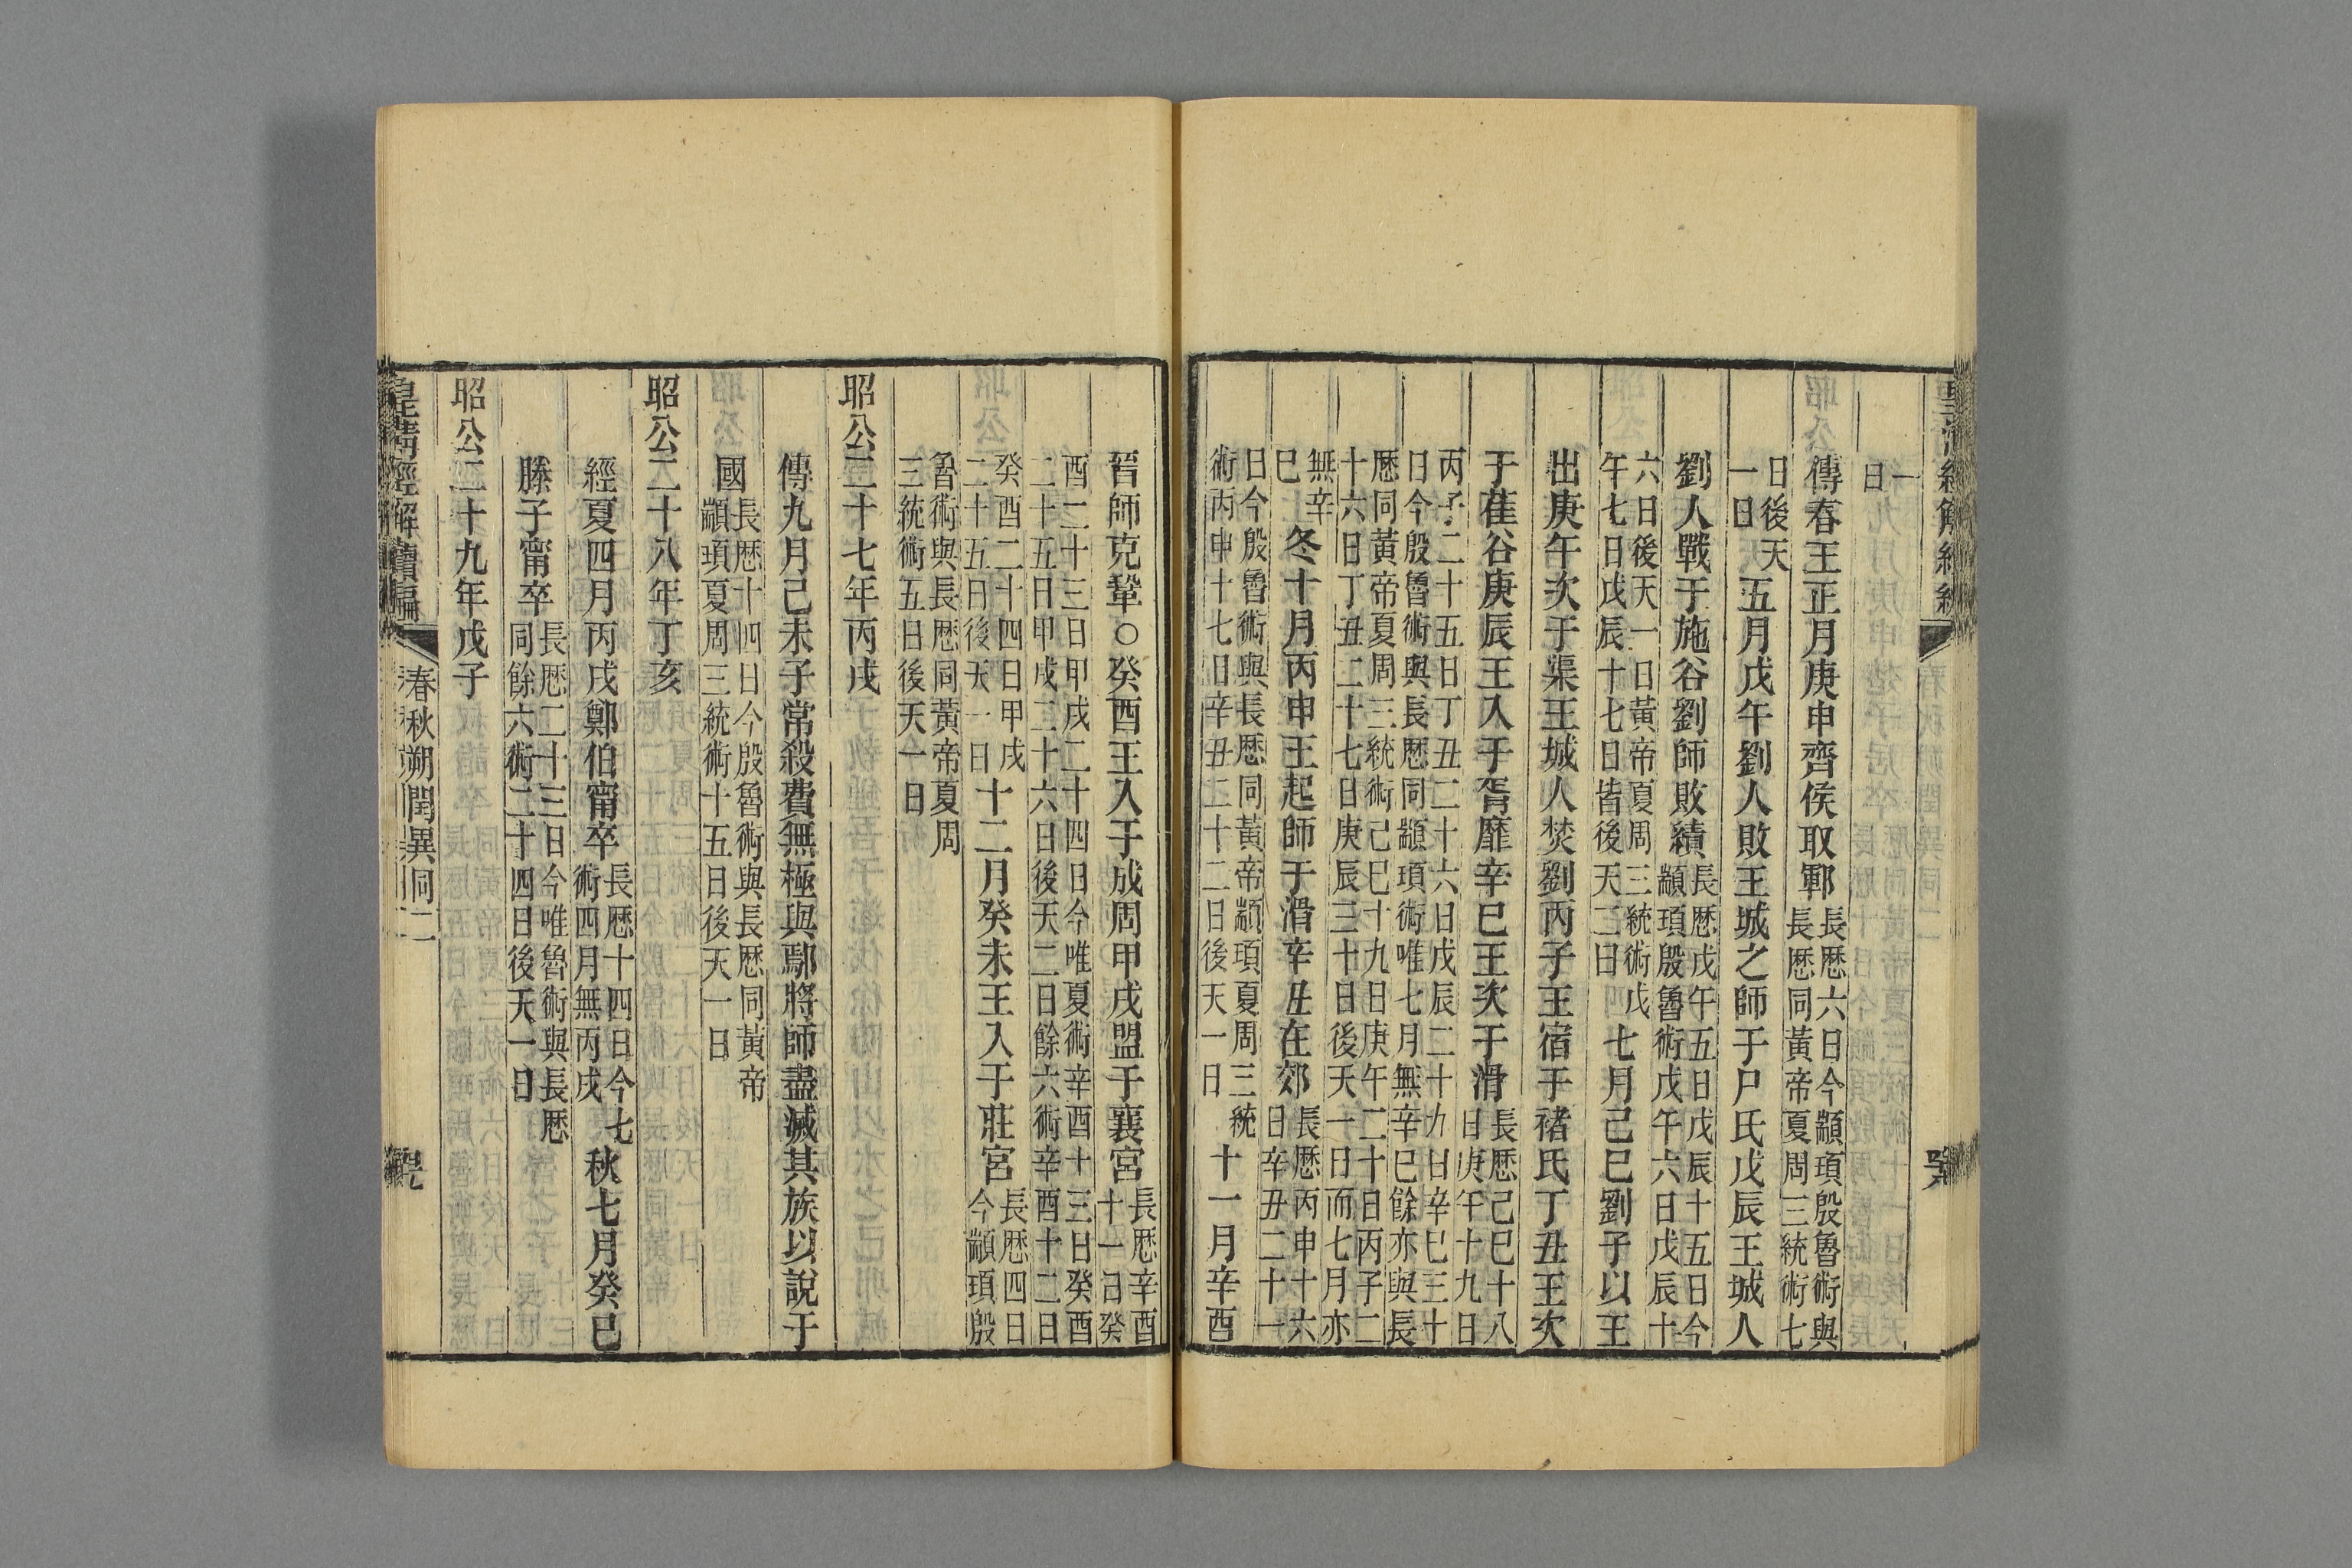 一日
傳春王正月庚申齊侯取鄆長厯六日今顓頊殷魯術與長厯同黃帝夏周三統術七
日後天一日五月戊午劉人敗王城之師于尸氏戊辰王城人
劉人戰于施谷劉師敗績長厯戊午五日戊辰十五日今顓頊殷魯術戊午六日戊辰十
六日後天一日黃帝夏周三統術戊午七日戊辰十七日皆後天二日七月己巳劉子以王
出庚午次于渠王城人焚劉丙子王宿于褚氏丁丑王次
于萑谷庚辰王入于胥靡辛巳王次于滑長厯己巳十八日庚午十九日
丙子二十五日丁丑二十六日戊辰二十九日辛巳三十日今殷魯術與長厯同顓頊術唯七月無辛巳餘亦與長
厯同黃帝夏周三統術己巳十九日庚午二十日丙子二十六日丁丑二十七日庚辰三十日後天一日而七月亦
無辛巳冬十月丙申王起師于滑辛丑在郊長厯丙申十六日辛丑二十一
日今殷魯術與長厯同黃帝顓頊夏周三統術丙申十七日辛丑二十二日後天一日十一月辛酉
晉師克鞏○癸酉王入于成周甲戌盟于襄宮長厯辛酉十一日癸
酉二十三日甲戌二十四日今唯夏術辛酉十三日癸酉二十五日甲戌二十六日後天二日餘六術辛酉十二日
癸酉二十四日甲戌二十五日後天一日十二月癸未王入于莊宮長厯四日今顓頊殷
魯術與長厯同黃帝夏周三統術五日後天一日
昭公二十七年丙戌
傳九月己未子常殺費無極與鄢將師盡滅其族以說于
國長厯十四日今殷魯術與長厯同黃帝顓頊夏周三統術十五日後天一日
昭公二十八年丁亥
經夏四月丙戌鄭伯甯卒長厯十四日今七術四月無丙戌秋七月癸巳
滕子甯卒長厯二十三日今唯魯術與長厯同餘六術二十四日後天一日
昭公二十九年戊子
皇清經解續編
春秋朔閏異同二